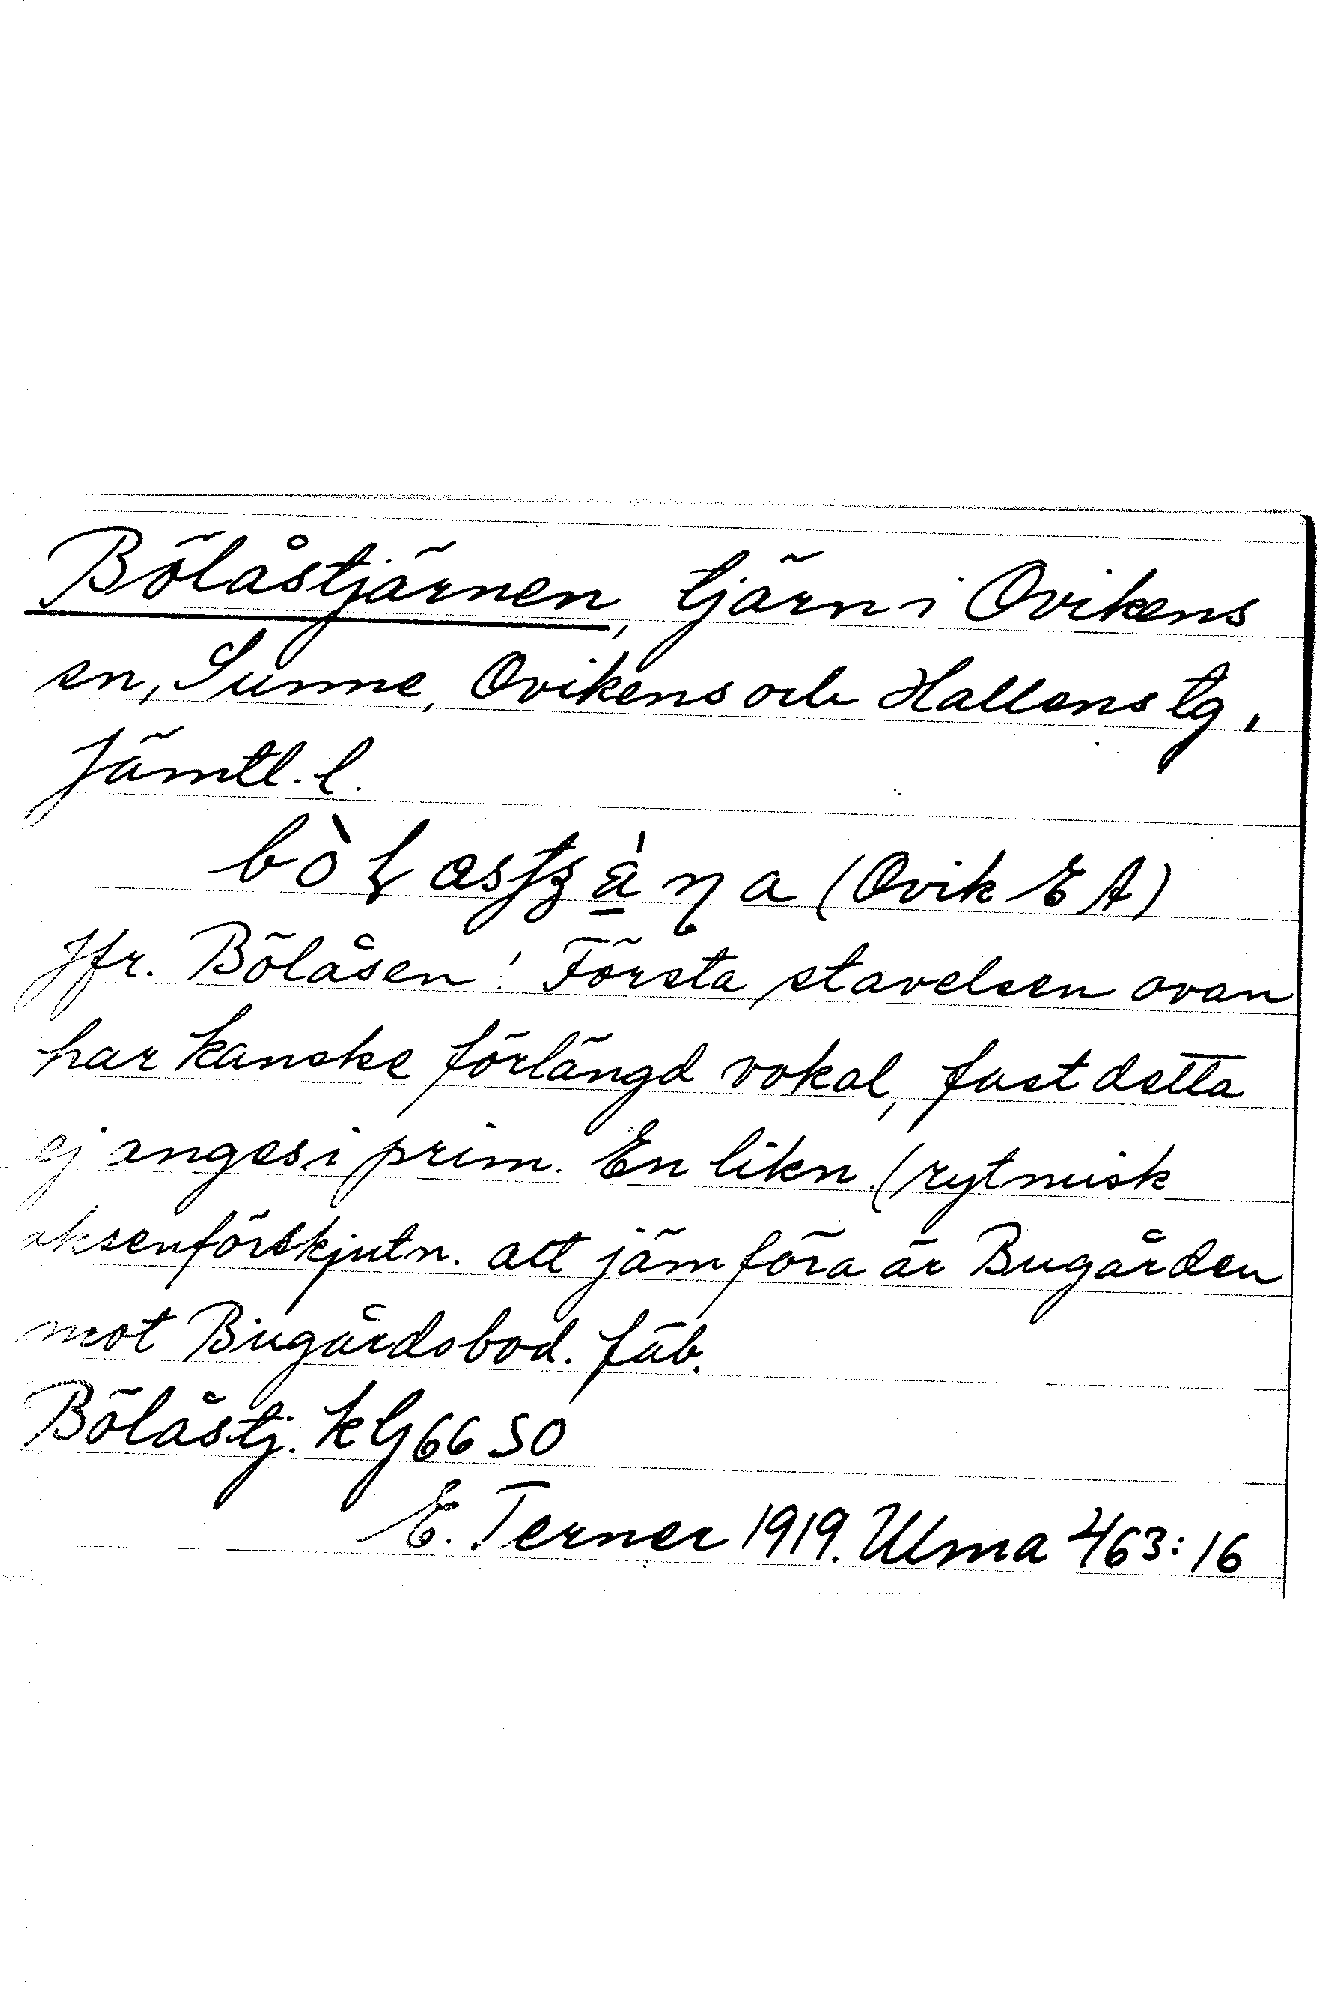 Bölåstjärnen, tjärn i Ovikens
sn, Sunne, Ovikens och Hallens tg,
Jämtl. l.
(Ovik E A)
Jfr. Bölåsen! Första stavelsen ovan
har kanske förlängd vokal, fast detta
ej anges i prim. En likn. (rytmisk
aksenförskjutn. att jämföra är Bugården
mot Bugårdsbod. fäb.
Bölåstj. kG 66 SO
E. Terner 1919. Ulma 463:16